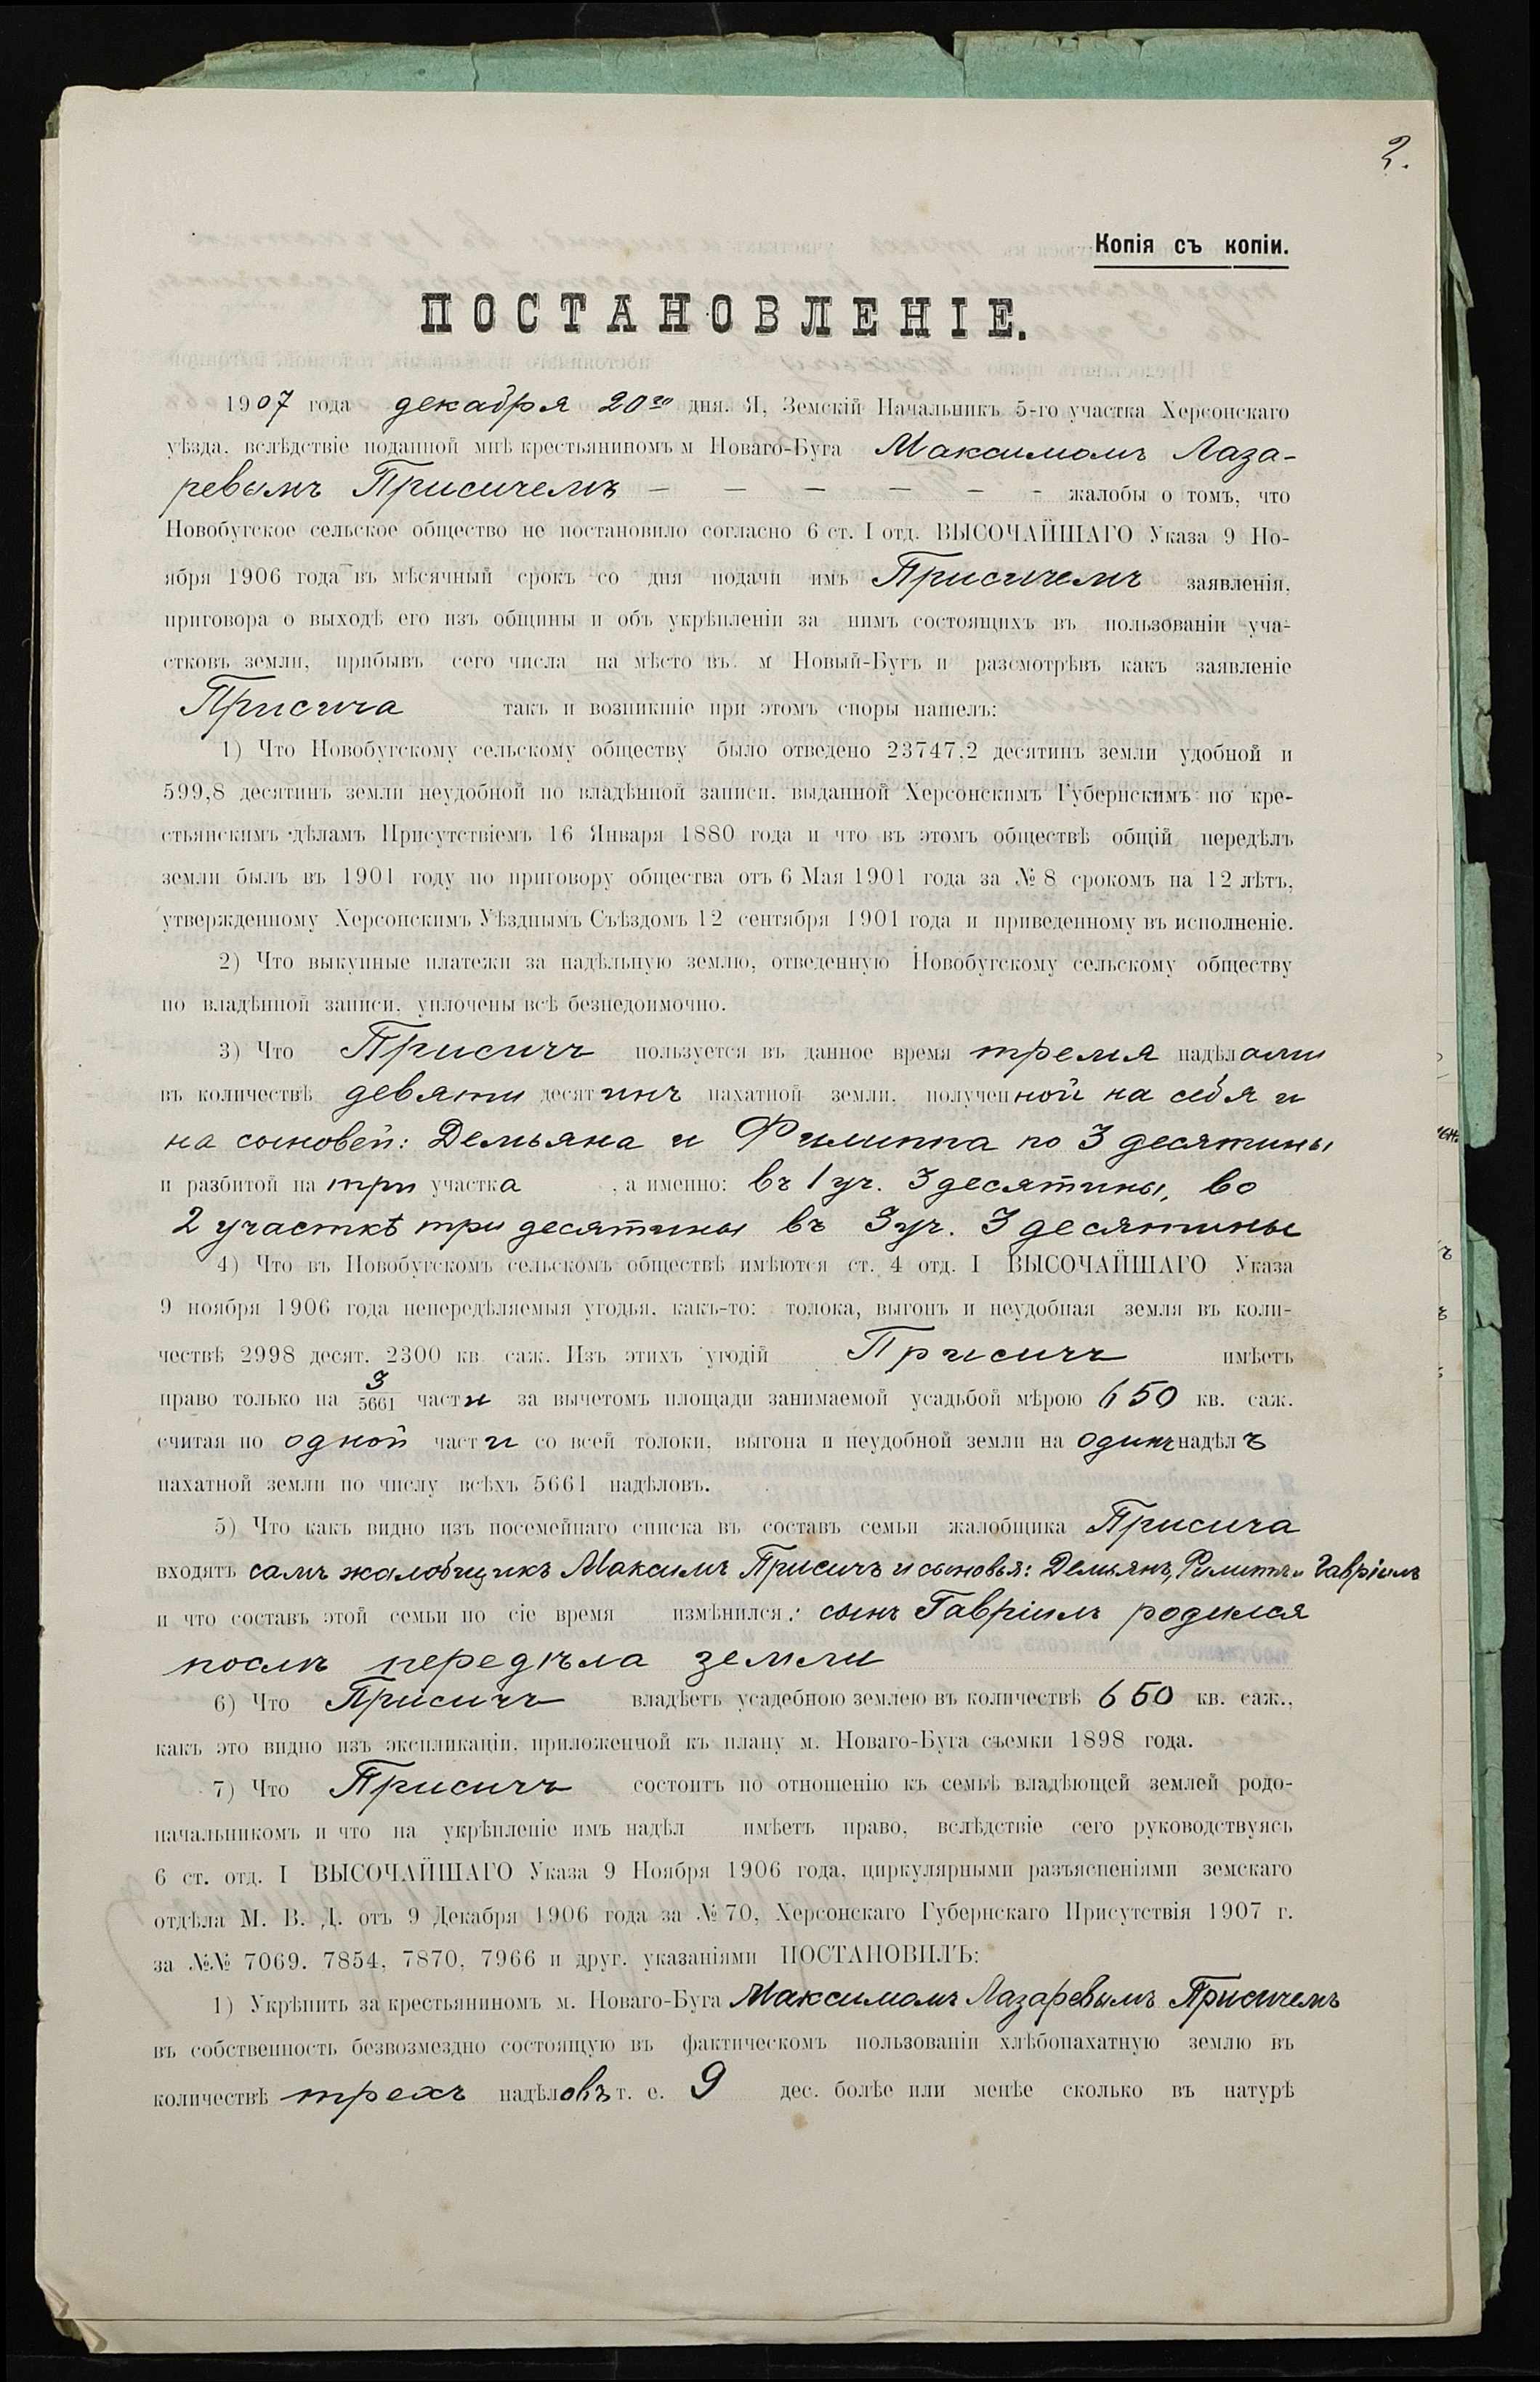 2.
Копія съ копіи.
ПОСТАНОВЛЕНІЕ.
1907 года декабря 20го дня. Я, Земскій Начальникъ 5-го участка Херсонскаго
уѣзда, вслѣдствіе поданной мнѣ крестьяниномъ м Новаго-Буга Максимомъ Лаза-
ревымъ Присичемъ — — — — — - жалобы о томъ, что
Новобугское сельское общество не постановило согласно 6 ст. I отд. ВЫСОЧАЙШАГО Указа 9 Но-
ября 1906 года въ мѣсячный срокъ со дня подачи имъ Присичемъ заявленія,
приговора о выходѣ его изъ общины и объ укрѣпленіи за нимъ состоящихъ въ пользованіи уча-
стковъ земли, прибывъ сего числа на мѣсто въ м Новый-Бугъ и разсмотрѣвъ какъ заявленіе
Присича такъ и возникшіе при этомъ споры нашелъ:
1) Что Новобугскому сельскому обществу было отведено 23747,2 десятинъ земли удобной и
599,8 десятинъ земли неудобной по владѣнной записи, выданной Херсонскимъ Губернскимъ по кре-
стьянскимъ дѣламъ Присутствіемъ 16 Января 1880 года и что въ этомъ обществѣ общій передѣлъ
земли былъ въ 1901 году по приговору общества отъ 6 Мая 1901 года за № 8 срокомъ на 12 лѣтъ,
утвержденному Херсонскимъ Уѣзднымъ Съѣздомъ 12 сентября 1901 года и приведенному въ исполненіе.
2) Что выкупные платежи за надѣльную землю, отведенную Новобугскому сельскому обществу
по владѣнной записи, уплочены всѣ безнедоимочно.
3) Что Присичъ пользуется въ данное время тремя надѣлами
въ количествѣ девяти десятинъ пахатной земли, полученной на себя и
на сыновей: Демьяна и Филиппа по 3 десятины
и разбитой на три участка , а именно: въ 1 уч. 3 десятины, во
2 участкѣ три десятины въ 3 уч. 3 десятины
4) Что въ Новобугскомъ сельскомъ обществѣ имѣются ст. 4 отд. I ВЫСОЧАЙШАГО Указа
9 ноября 1906 года непередѣляемыя угодья, какъ-то: толока, выгонъ и неудобная земля въ коли-
чествѣ 2998 десят. 2300 кв саж. Изъ этихъ угодій Присичъ имѣетъ
право только на 3/5661 части за вычетомъ площади занимаемой усадьбой мѣрою 650 кв. саж.
считая по одной части со всей толоки, выгона и неудобной земли на одинъ надѣлъ
пахатной земли по числу всѣхъ 5661 надѣловъ.
5) Что какъ видно изъ посемейнаго списка въ составъ семьи жалобщика Присича
входятъ самъ жалобщикъ Максимъ Присичъ и сыновья: Демьянъ, Филиппъ и Гавріилъ
и что составъ этой семьи по сіе время измѣнился: сынъ Гавріилъ родился
послѣ передѣла земли
6) Что Присичъ владѣетъ усадебною землею въ количествѣ 650 кв. саж.,
какъ это видно изъ экспликаціи, приложенной къ плану м. Новаго-Буга съемки 1898 года.
7) Что Присичъ состоитъ по отношенію къ семьѣ владѣющей землей родо-
начальникомъ и что на укрѣпленіе имъ надѣл имѣетъ право, вслѣдствіе сего руководствуясь
6 ст. отд. I ВЫСОЧАЙШАГО Указа 9 Ноября 1906 года, циркулярными разъясненіями земскаго
отдѣла М. В. Д. отъ 9 Декабря 1906 года за № 70, Херсонскаго Губернскаго Присутствія 1907 г.
за №№ 7069. 7854, 7870, 7966 и друг. указаніями ПОСТАНОВИЛЪ:
1) Укрѣпить за крестьяниномъ м. Новаго-Буга Максимомъ Лазаревымъ Присичемъ
въ собственность безвозмездно состоящую въ фактическомъ пользованіи хлѣбопахатную землю въ
количествѣ трехъ надѣловъ т. е. 9 дес. болѣе или менѣе сколько въ натурѣ